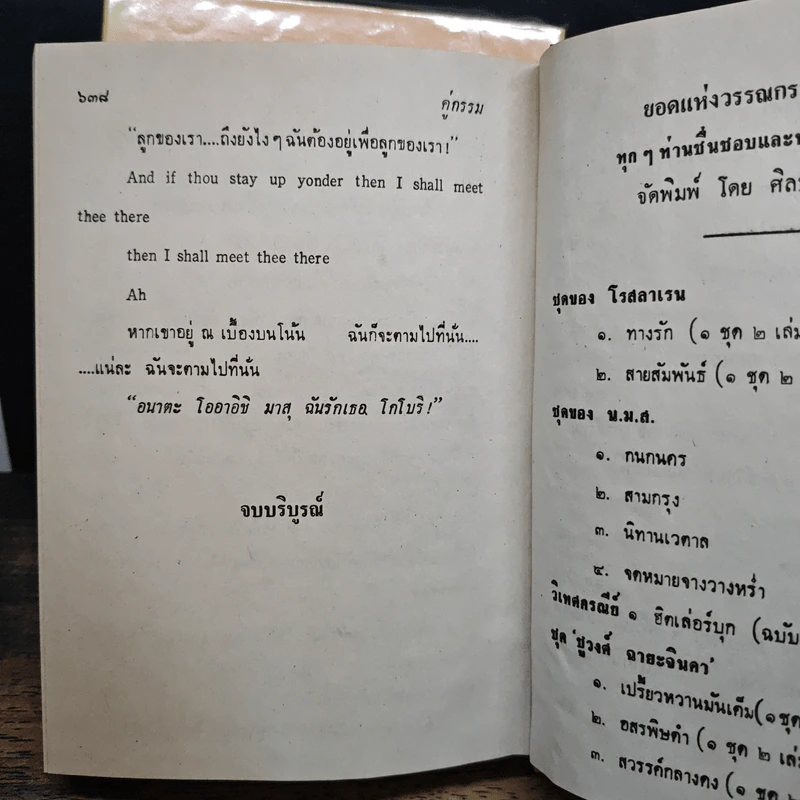 ๖๓๘
คู่กรรม
“ลูกของเรา....ถึงยังไง ๆ ฉันต้องอยู่เพื่อลูกของเรา!”
And if thou stay up yonder then I shall meet
thee there
then I shall meet thee there
Ah
หากเขาอยู่ ณ เบื้องบนโน้น ฉันก็จะตามไปที่นั่น....
....แน่ละ ฉันจะตามไปที่นั่น
“อนาตะ โออาอิชิ มาสุ ฉันรักเธอ โกโบริ!”
จบบริบูรณ์
ยอดแห่งวรรณกร
ทุก ๆ ท่านชื่นชอบและ
จัดพิมพ์ โดย ศิล
ชุดของ โรสลาเรน
๑. ทางรัก (๑ ชุด ๒ เล่ม
๒. สายสัมพันธ์ (๑ ชุด ๒
ชุดของ น.ม.ส.
๑. กนกนคร
๒. สามกรุง
๓. นิทานเวตาล
๔. จดหมายจางวางหร่ำ
วิเทศดรุณีย์ ๑ ฮิตเล่อร์บุก (ฉบับ
ชุด ‘ชูวงศ์ ฉายะจินดา’
๑. เปรี้ยวหวานมันเค็ม (๑ ชุด
๒. อสรพิษดำ (๑ ชุด ๒ เล่ม
๓. สวรรค์กลางดง (๑ ชุด ๒